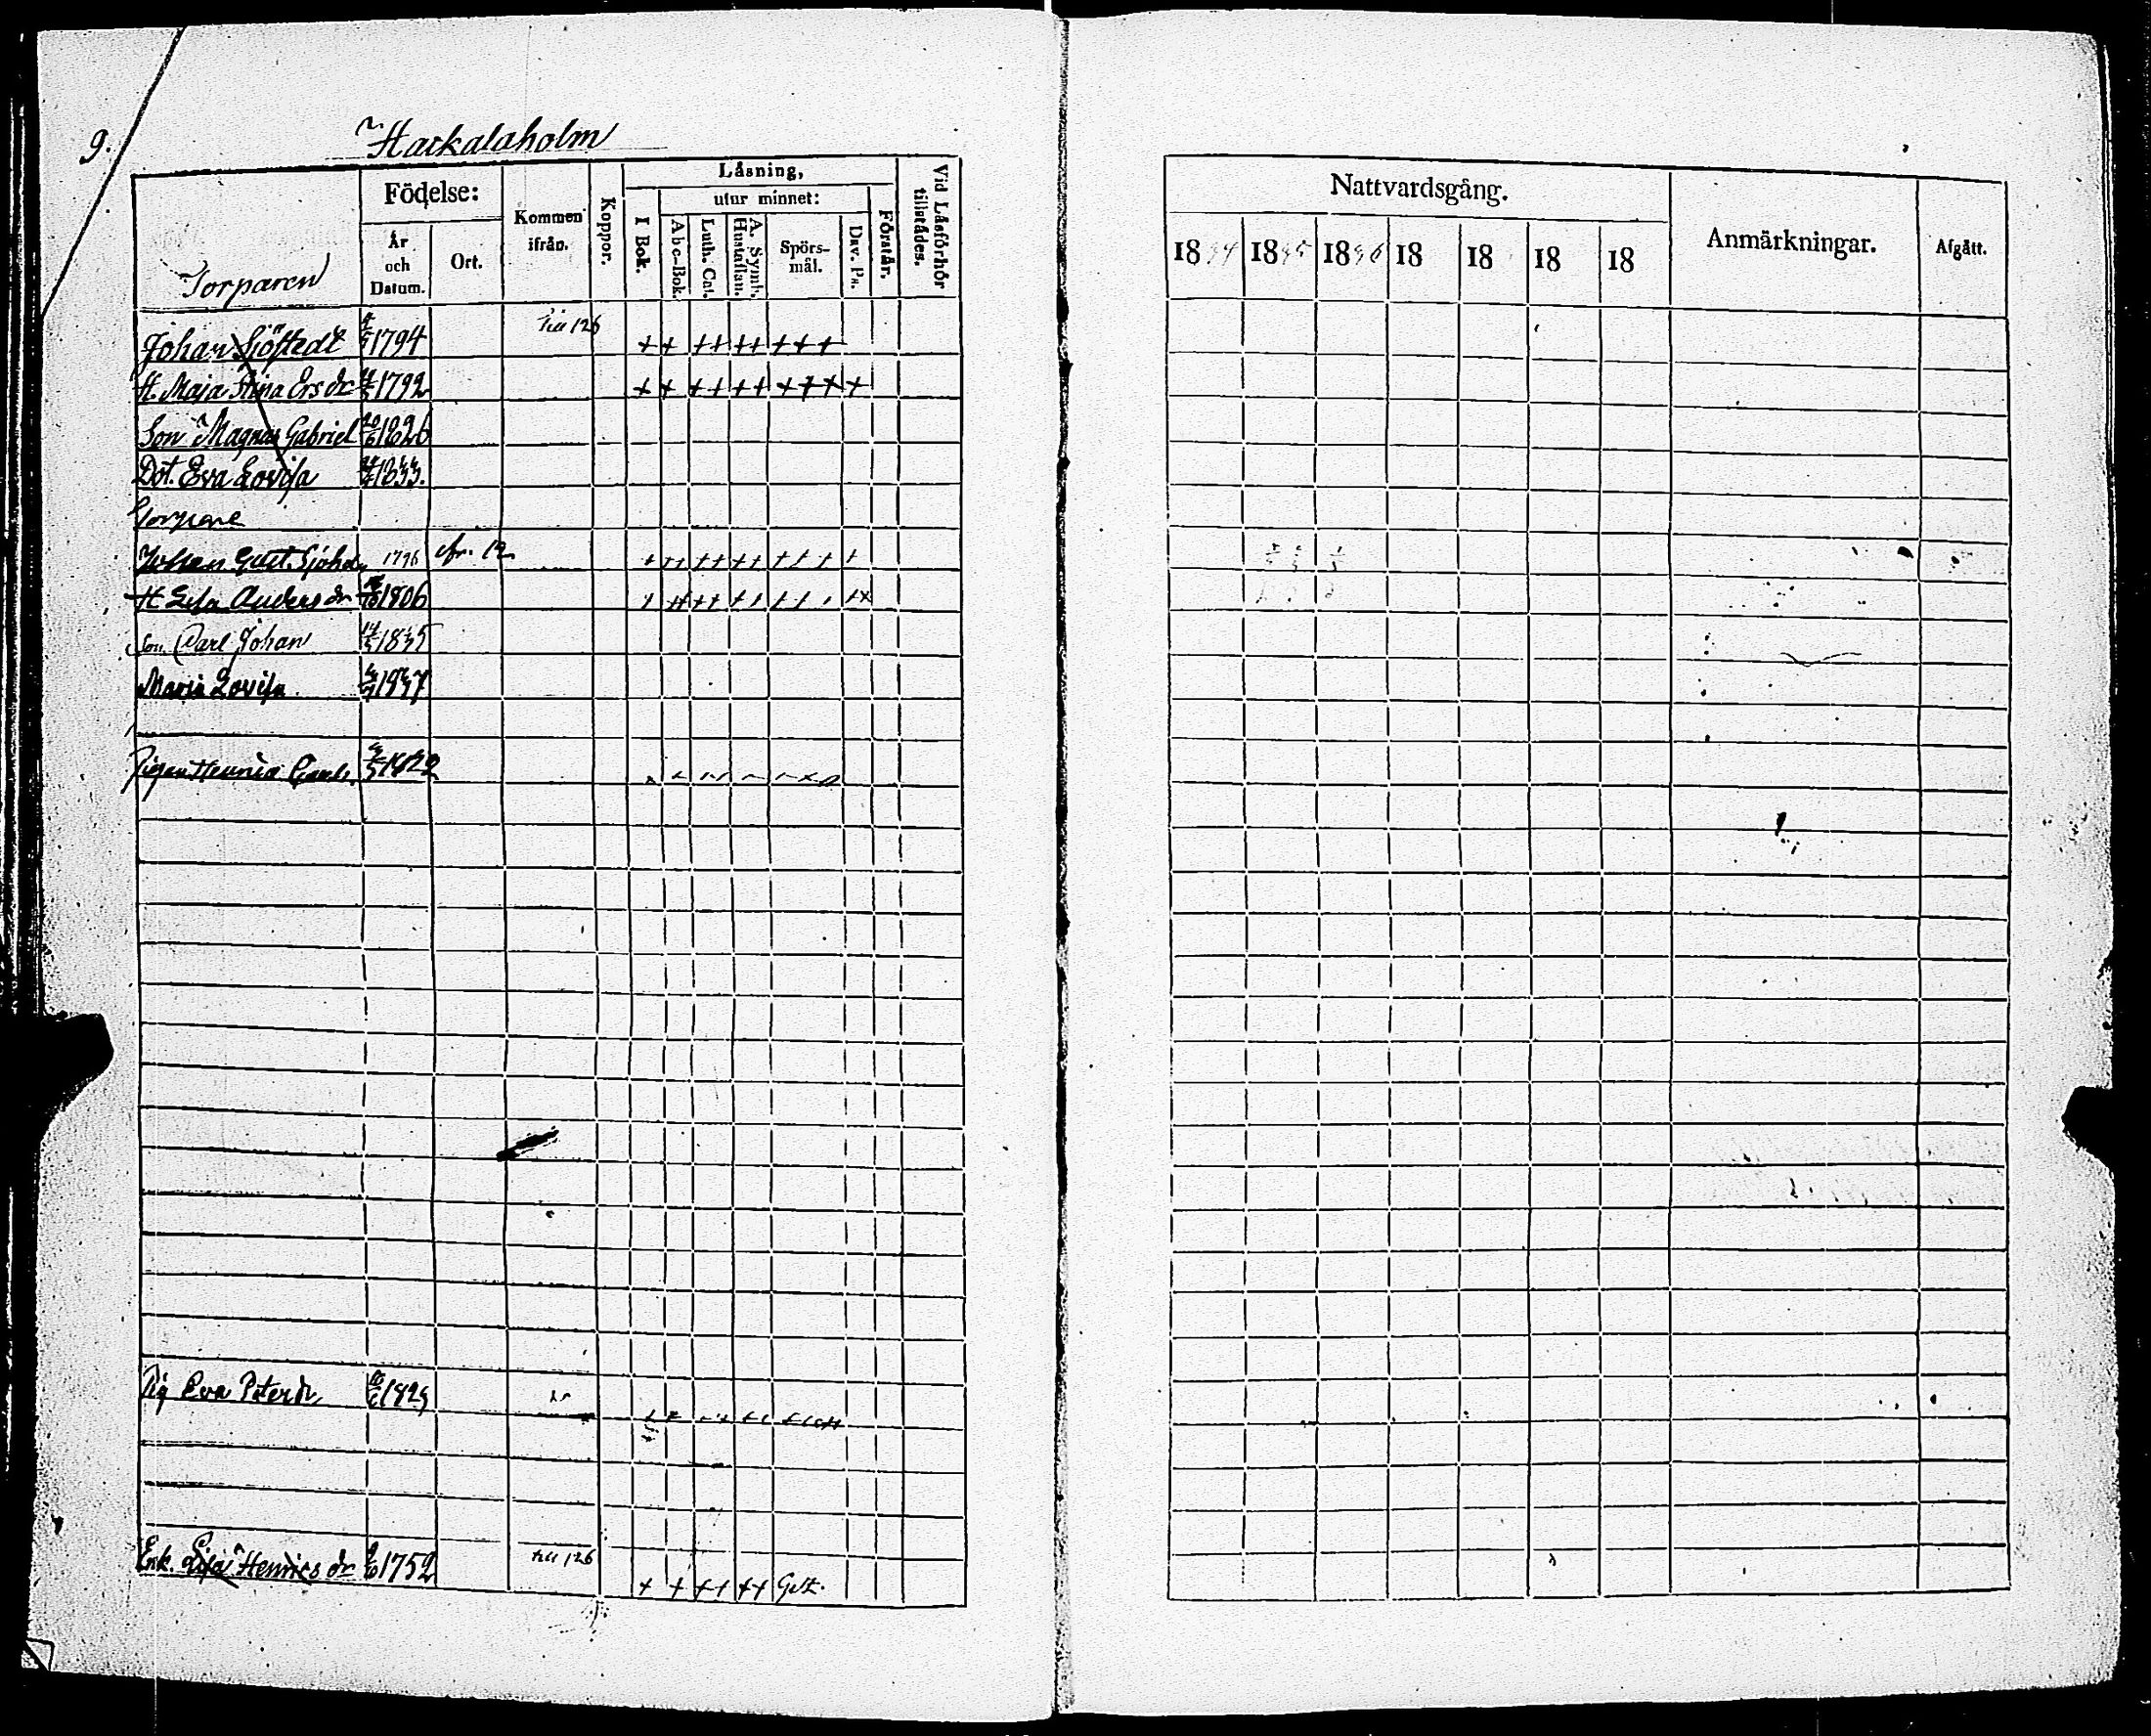 9.
Harkalaholm
Födelse:
Kommen ifrån.
Koppor.
Läsning,
utur minnet:
I Bok.
Abc-Bok.
Luth. Cat.
A. Symb. Hustaflan.
Spörs-mål.
Dav. Ps.
Förstår.
Vid Läsförhör tillstädes.
År och Datum.
Ort.
Torparen
Johan Sjöstedt 1794 till 126 + + ++ ++ +++
H. Maja Stina Ersdr 1792 + + ++ ++ +++ +
Son Magnus Gabriel 20/6 1826
Dot. Eva Lovisa 1833.
Torpare
Johan Gust. 1796 fr. 12 + ++ ++ ++ +++ +
H Lisa Andersdr 1806
Son Carl Johan 14/5 1835
Maria Lovisa 1837
Pigan 1822
Pig Eva Petersdr 1823
Enk. Lisa Henricsdr 1752 till 126 + + ++ ++
Nattvardsgång.
Anmärkningar.
Afgått.
1834 1835 1836 18 18 18 18